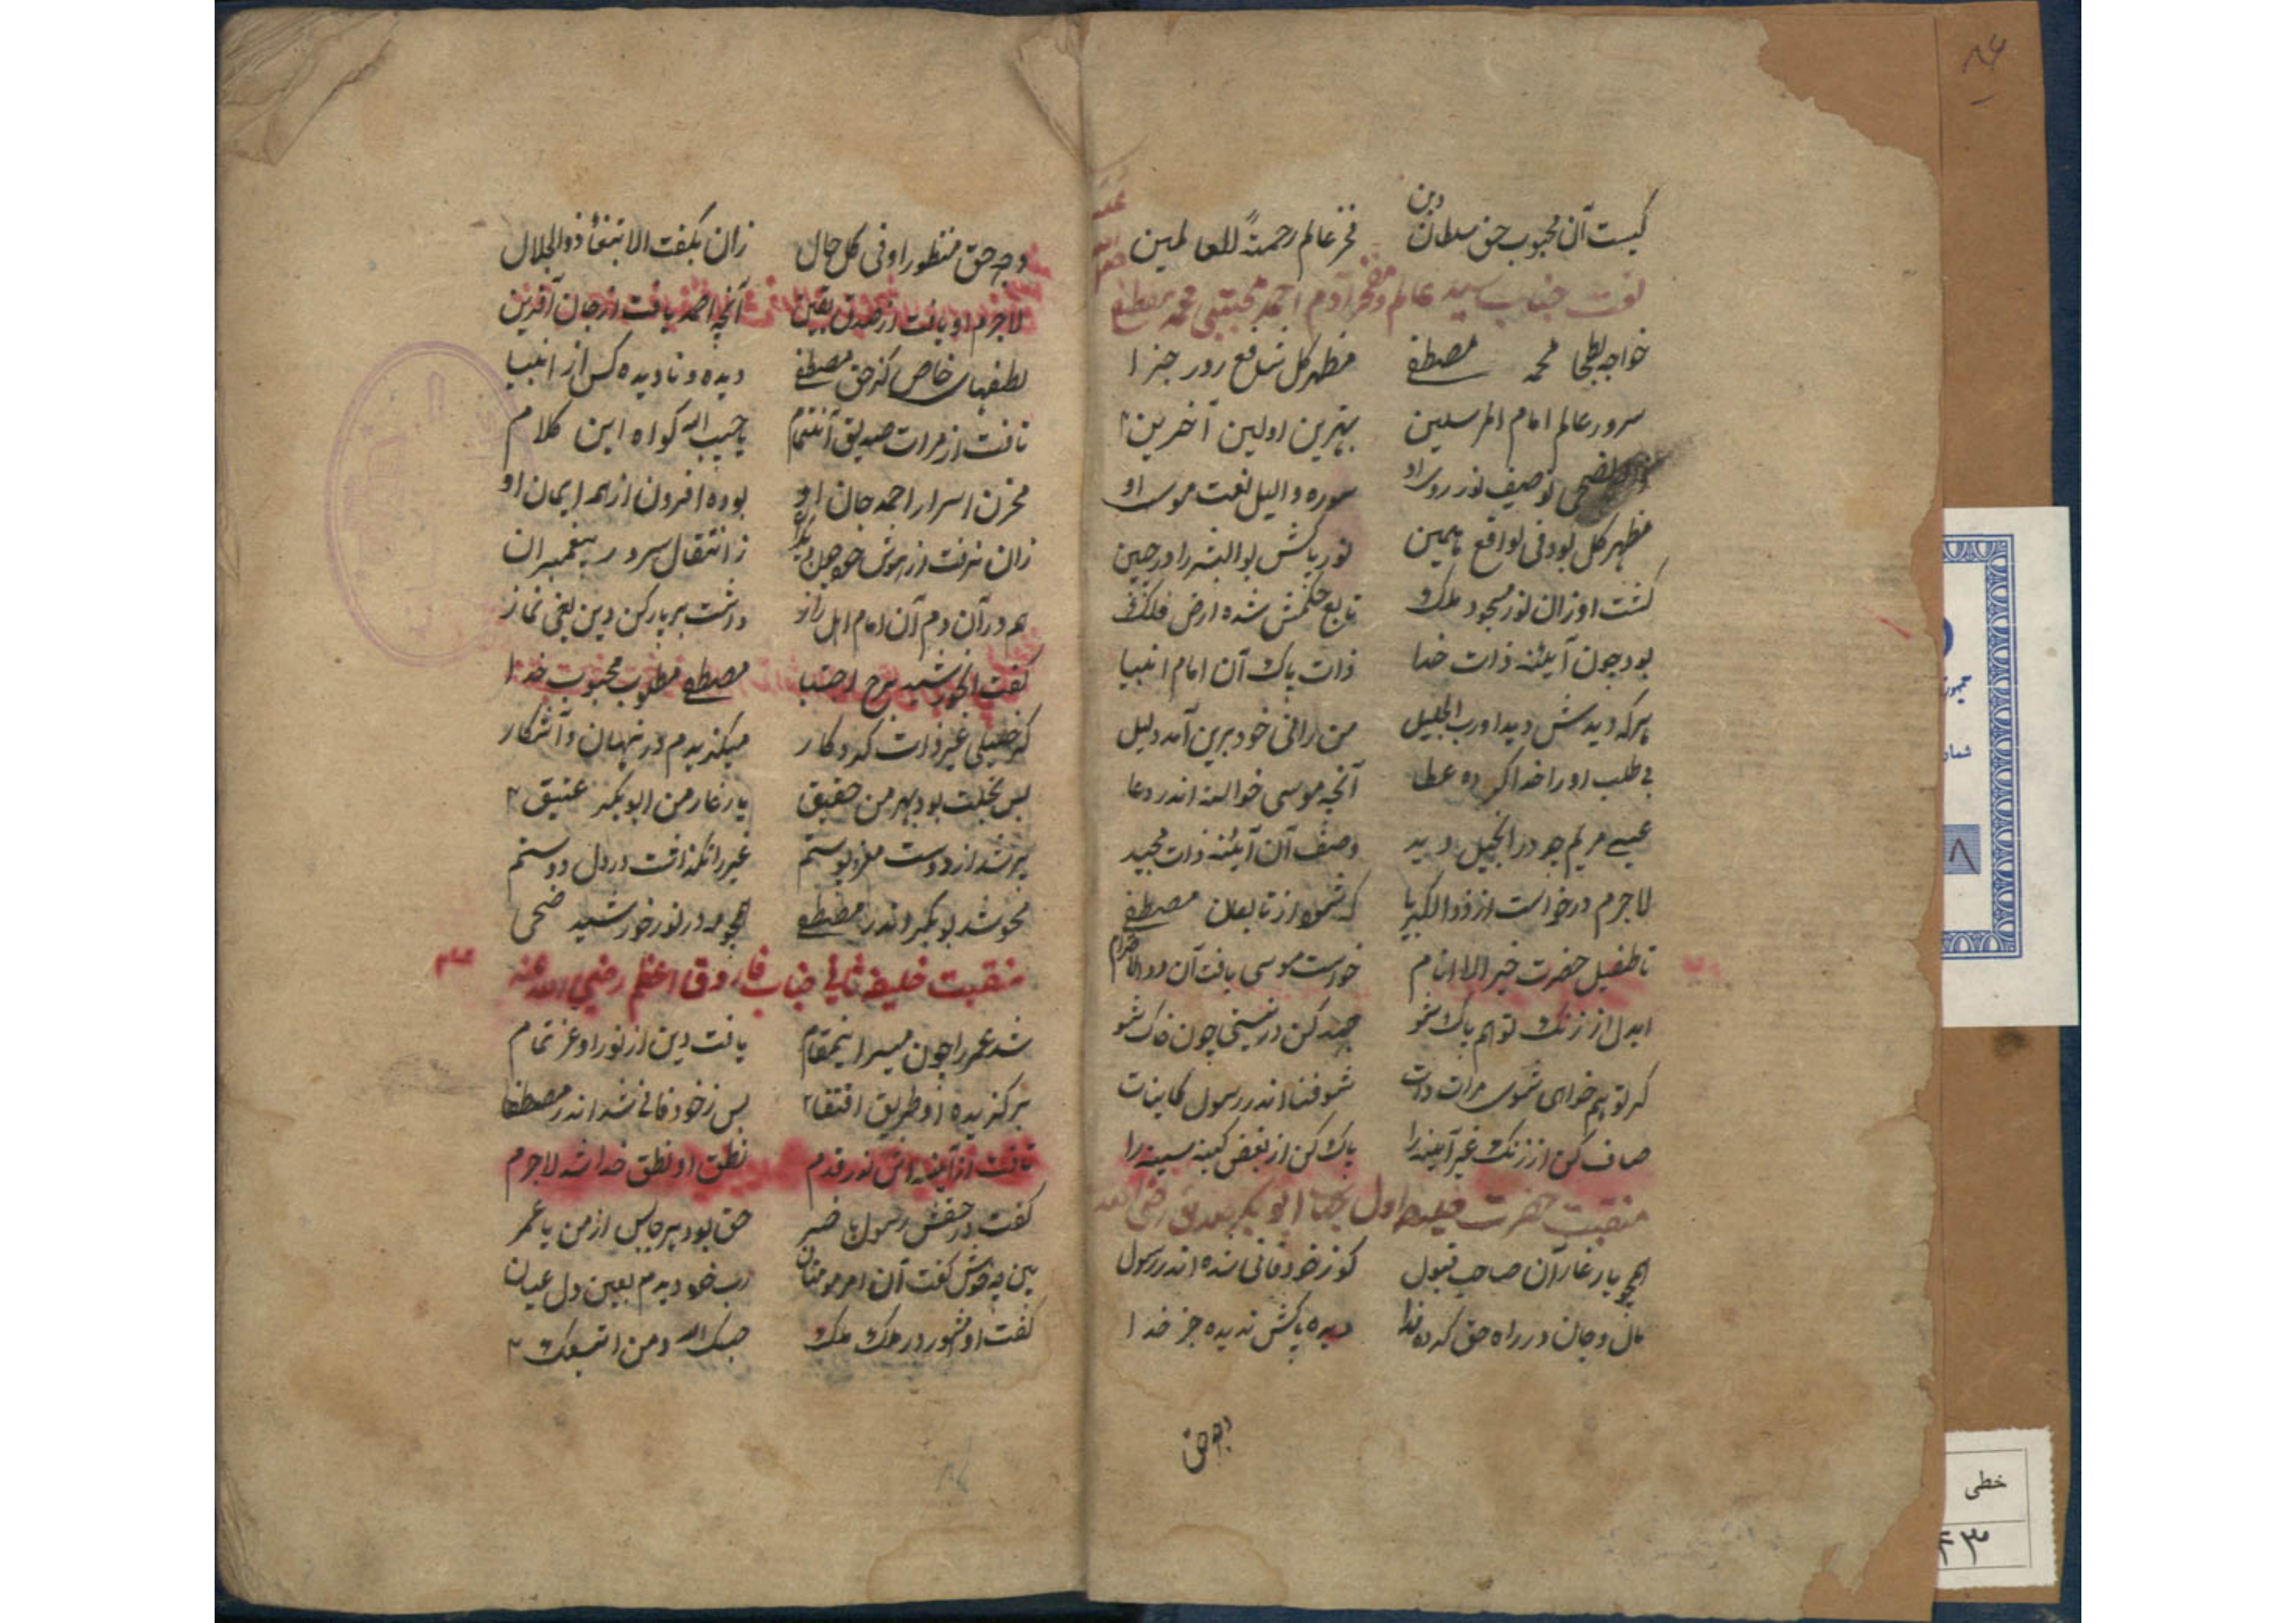 کیست آن محبوب حق سلطان دین فخر عالم رحمةً للعالمین
نعت جناب سید عالم و مفخر آدم احمد مجتبی محمد مصطفی
خواجه بطحا محمد مصطفی مظهر کل شافع روز جزا
سرور عالم امام المرسلین بهترین اولین آخرین
والضحی توصیف نور روی او سوره واللیل نعت موی او
مظهر کل بود فی الواقع همین نور پاکش بوالبشر را در جبین
گشت او زان نور مسجود ملک تابع حکمش شده ارض فلک
بود چون آیئنه ذات خدا ذات پاک آن امام انبیا
هرکه دیدش دید او رب الجلیل من رانی خود برین آمد دلیل
بی طلب او را خدا کرده عطا آنچه موسی خواسته اندر دعا
عیسی مریم چو در انجیل دید وصف آن آیئنه ذات مجید
لاجرم درخواست از ذوالکبریا که شود از تابعان مصطفی
تا طفیل حضرت خیر الاانام خواست موسی یافت آن
ایدل از زنگ تو هم پاک شو جهد کن در نیستی چون خاک شو
گر تو هم خواهی شوی مرات ذات شو فنا اندر رسول کاینات
صاف کن از زنگ غیر آئینه را پاک کن از بغض کینه سینه را
منقبت حضرت خلیفه اول جناب ابو بکر صدیق رضی الله
همچو یار غار آن صاحب قبول کو ز خود فانی شده اندر رسول
مال و جان در راه حق کرده فدا دیده پاکش ندیده جز خدا
وجه حق
وجه حق منظور او فی کل حال زان بگفت الا ابتغا ذوالجلال
لاجرم او یافت از صدق یقین آنچه احمد یافت از جان آفرین
لطفهای خاص کز حق مصطفی دیده و نادیده کس از انبیا
تافت از مرات صدیق آنتمام یا حبیب الله گواه این کلام
مخزن اسرار احمد جان او بوده افزون از همه ایمان او
زان نرفت از هوش ز انتقال سرور پیغمبران
هم در آن دم آن امام اهل راز داشت برپا رکن دین یعنی نماز
گفت آنخورشید برج اجتبا مصطفی مطلوب محبوب خدا
که خلیلی غیر ذات کردگار میگزیدم در نهان و آشکار
بس بخلت بود بهر من حقیق یار غار من ابوبکر عتیق
پر شد از دوست مغز و پوستم غیر را نگذاشت در دل دوستم
محو شد بوبکر اندر مصطفی همچو مه در نور خورشید ضحی
منقبت خلیفه ثانی جناب فاروق اعظم رضی الله عنه
شد عمر را چون میسر اینمقام یافت دین از نور او عز تمام
برگزیده او طریق اقتفا بس ز خود فانی شد اندر مصطفا
تافت از آئینه اش نور قدم نطق او نطق خدا شد لاجرم
گفت در حقش رسول با خبر حق بود هر جای از من یا عمر
بین چه خوش گفت آن امر مومنان رب خود دیدم بعین دل عیان
گفت او مشهور در ملک ملک حسبک الله و من اتبعک
خطی